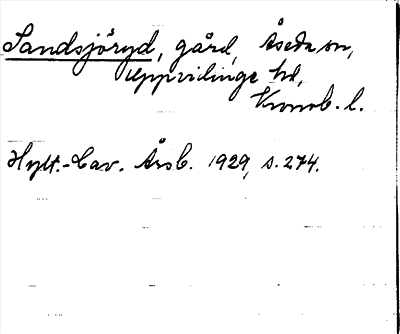 Sandsjöryd, gård, Åseda sn,
Uppvidinge hd,
Kronob. l.
Hylt.-Cav. Årsb. 1929, s. 274.